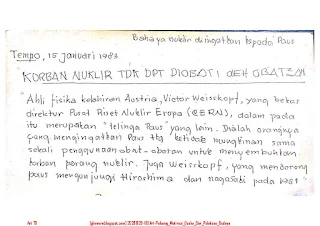 Bahaya nuklir diingatkan kpada Paus
Tempo, 15 Januari 1983
KORBAN NUKLIR TDK DPT DIOBATI OLEH OBAT2AN
Ahli fisika kelahiran Austria, Victor Weisskopf, yang bekas
direktur Pusat Riset Nuklir Eropa (CERN), dalam pada
itu merupakan "telinga Paus yang lain. Dialah orangnya
yang mengingatkan Paus ttg ketidak mungkinan sama
sekali penggunaan obat-obatan untuk menyembuhkan
korban perang nuklir. Juga Weisskopf, yang mendorong
paus mengunjungi Hiroshima dan nagasaki pada 1981